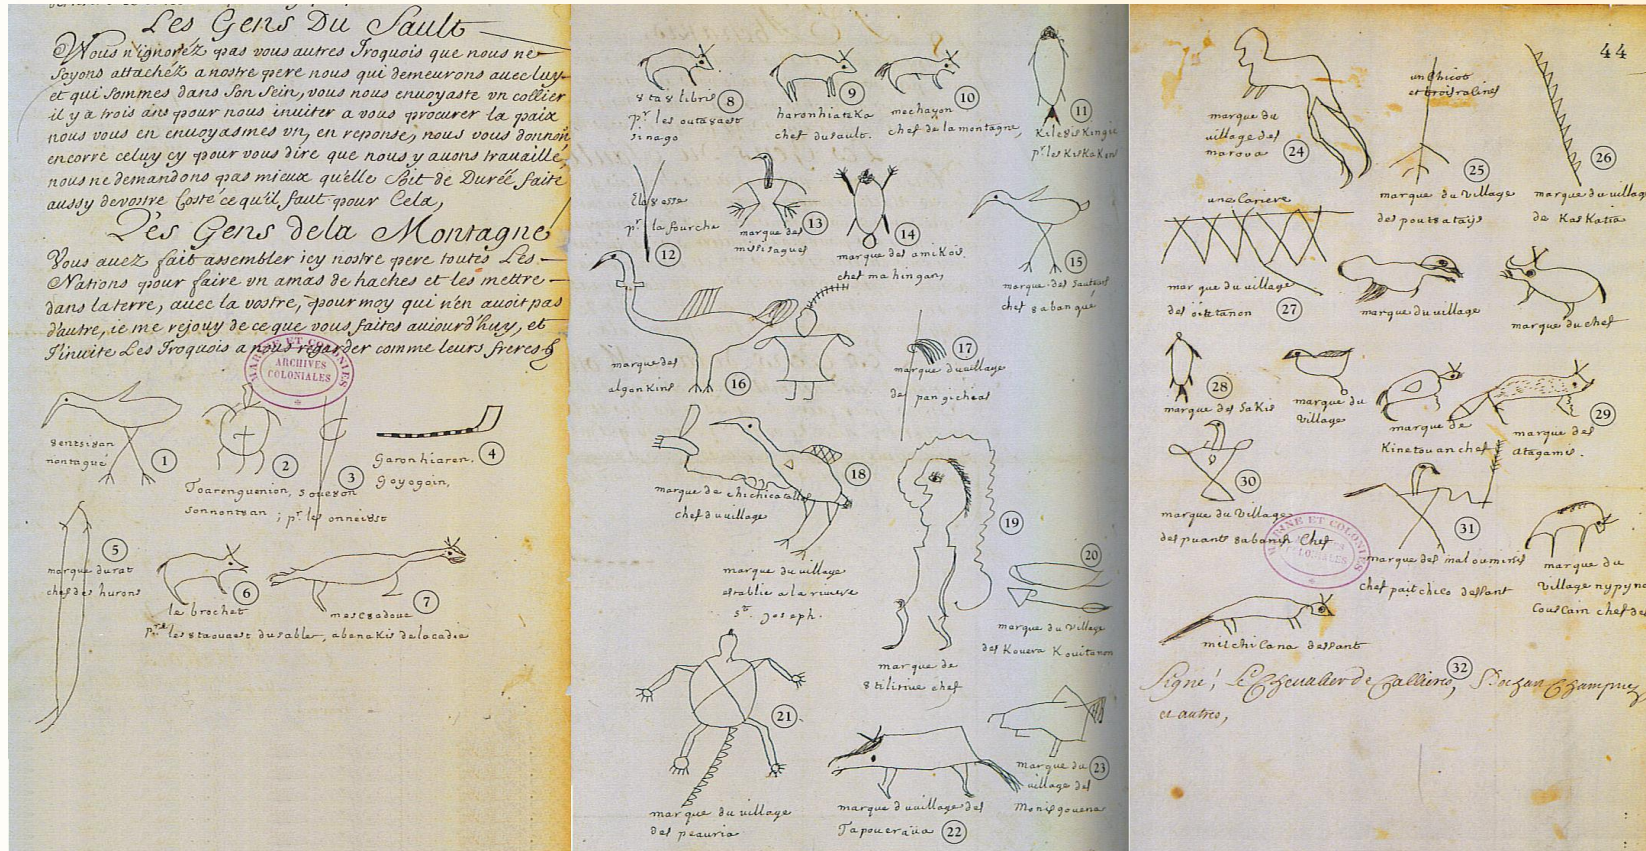 Les Gens Du Sault
Vous n'ignoréz pas vous autres Iroquois que nous ne
soyons attachéz a nostre pere nous qui demeurons avec luy
et qui sommes dans son sein, vous nous envoyaste vn collier
il y a trois ans pour nous inuiter a vous procurer la paix
nous vous en envoyasmes vn, en reponse, nous vous donnon
encorre celuy cy pour vous dire que nous y auons trauaillé,
nous ne demandons pas mieux qu'elle soit de Duréé faite
aussy de vostre Costé ce qu'il faut pour Cela,
Les Gens de la Montagne
Vous auez fait assembler icy nostre pere toutes Les
Nations pour faire vn amas de haches et les mettre
dans la terre, auec la vostre, pour moy qui n'en auoit pas
d'autre, ie me rejouy de ce que vous faites auiourd'huy, et
J'inuite Les Iroquois a nous regarder comme leurs freres
MARINE ET COLONIES
ARCHIVES
COLONIALES
8entsi8an
nontagué
1
Toarenguenion,
sonnontuan
2
3
; pr les onnei8st
Garonhiaren,
Goyogoin,
4
5
marque du rat
chef des hurons
le brochet
6
pr les 8taouacs du sable,
mesc8adoue
7
abenakis de lacadie
8
pr les outa8acs
sinago
haronhiateka
9
chef du sault.
mechayon
10
chef de la montagne,
11
Kile8iskingié
pr les KisKaKons
Ela8esse
pr la fourche
12
marque des
missisagues
13
14
marque des amikois
chef mahingan,
15
marque des sauteurs
chef 8aban gué
marque des
algonKins
16
17
marque du village
des pangicheas
18
marque de chichicatallo
chef du village
marque du village
establie a la riuiere
st. Joseph.
19
marque de
8tilirine chef
20
marque du Village
des Kouera Kouitanon
21
marque du village
des peauria
marque du village des
Tapoueroüa
22
marque du
23
village des
Monisgouena
44
marque du
village des
maroua
24
un chicot
et trois racines
25
marque du Village
des pout8atayis
26
marque du village
de KasKatia
une lariere
marque du village
des oüetanon
27
marque du village
marque du chef
28
marque des saKis
marque du
Village
marque de
Kinetouan chef
29
marque des
8tagamis.
30
marque du Village
des puants 8abanis Chef
MARINE ET COLONIES
COLONIALES
31
marque des malouminis
chef paitchico dessant
marque du
Village nypyno
Couscain chef de
mischilana dessant
32
Signé, Le Chevalier de Callieres,
et autres,